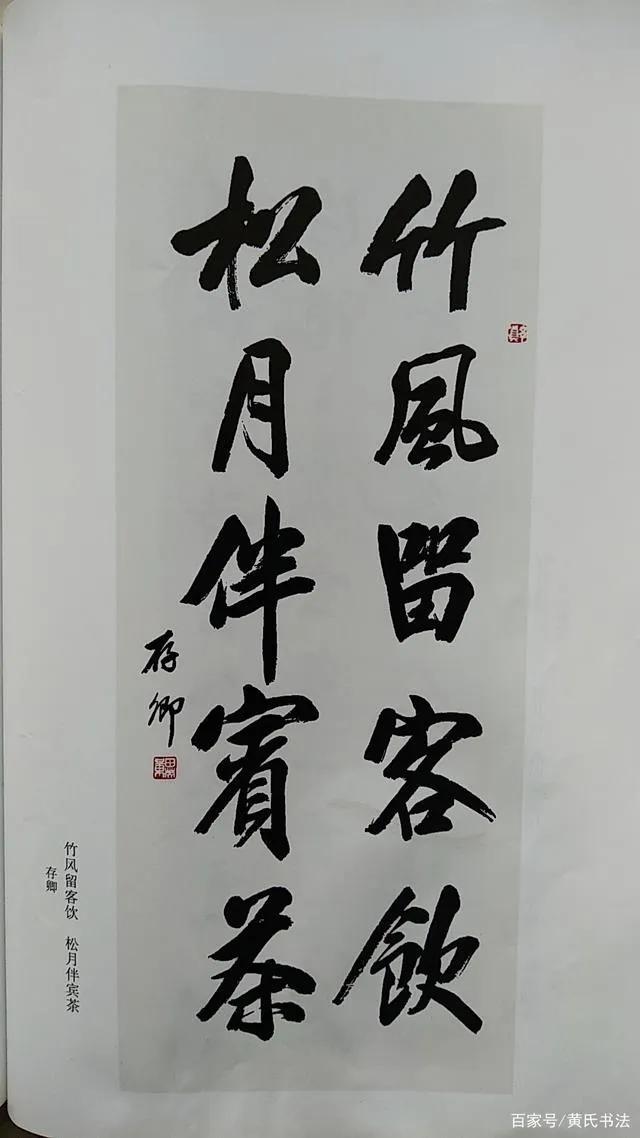 竹風留客飲
松月伴賓茶
存卿
竹风留客饮 松月伴宾茶
存卿
百家号/黄氏书法